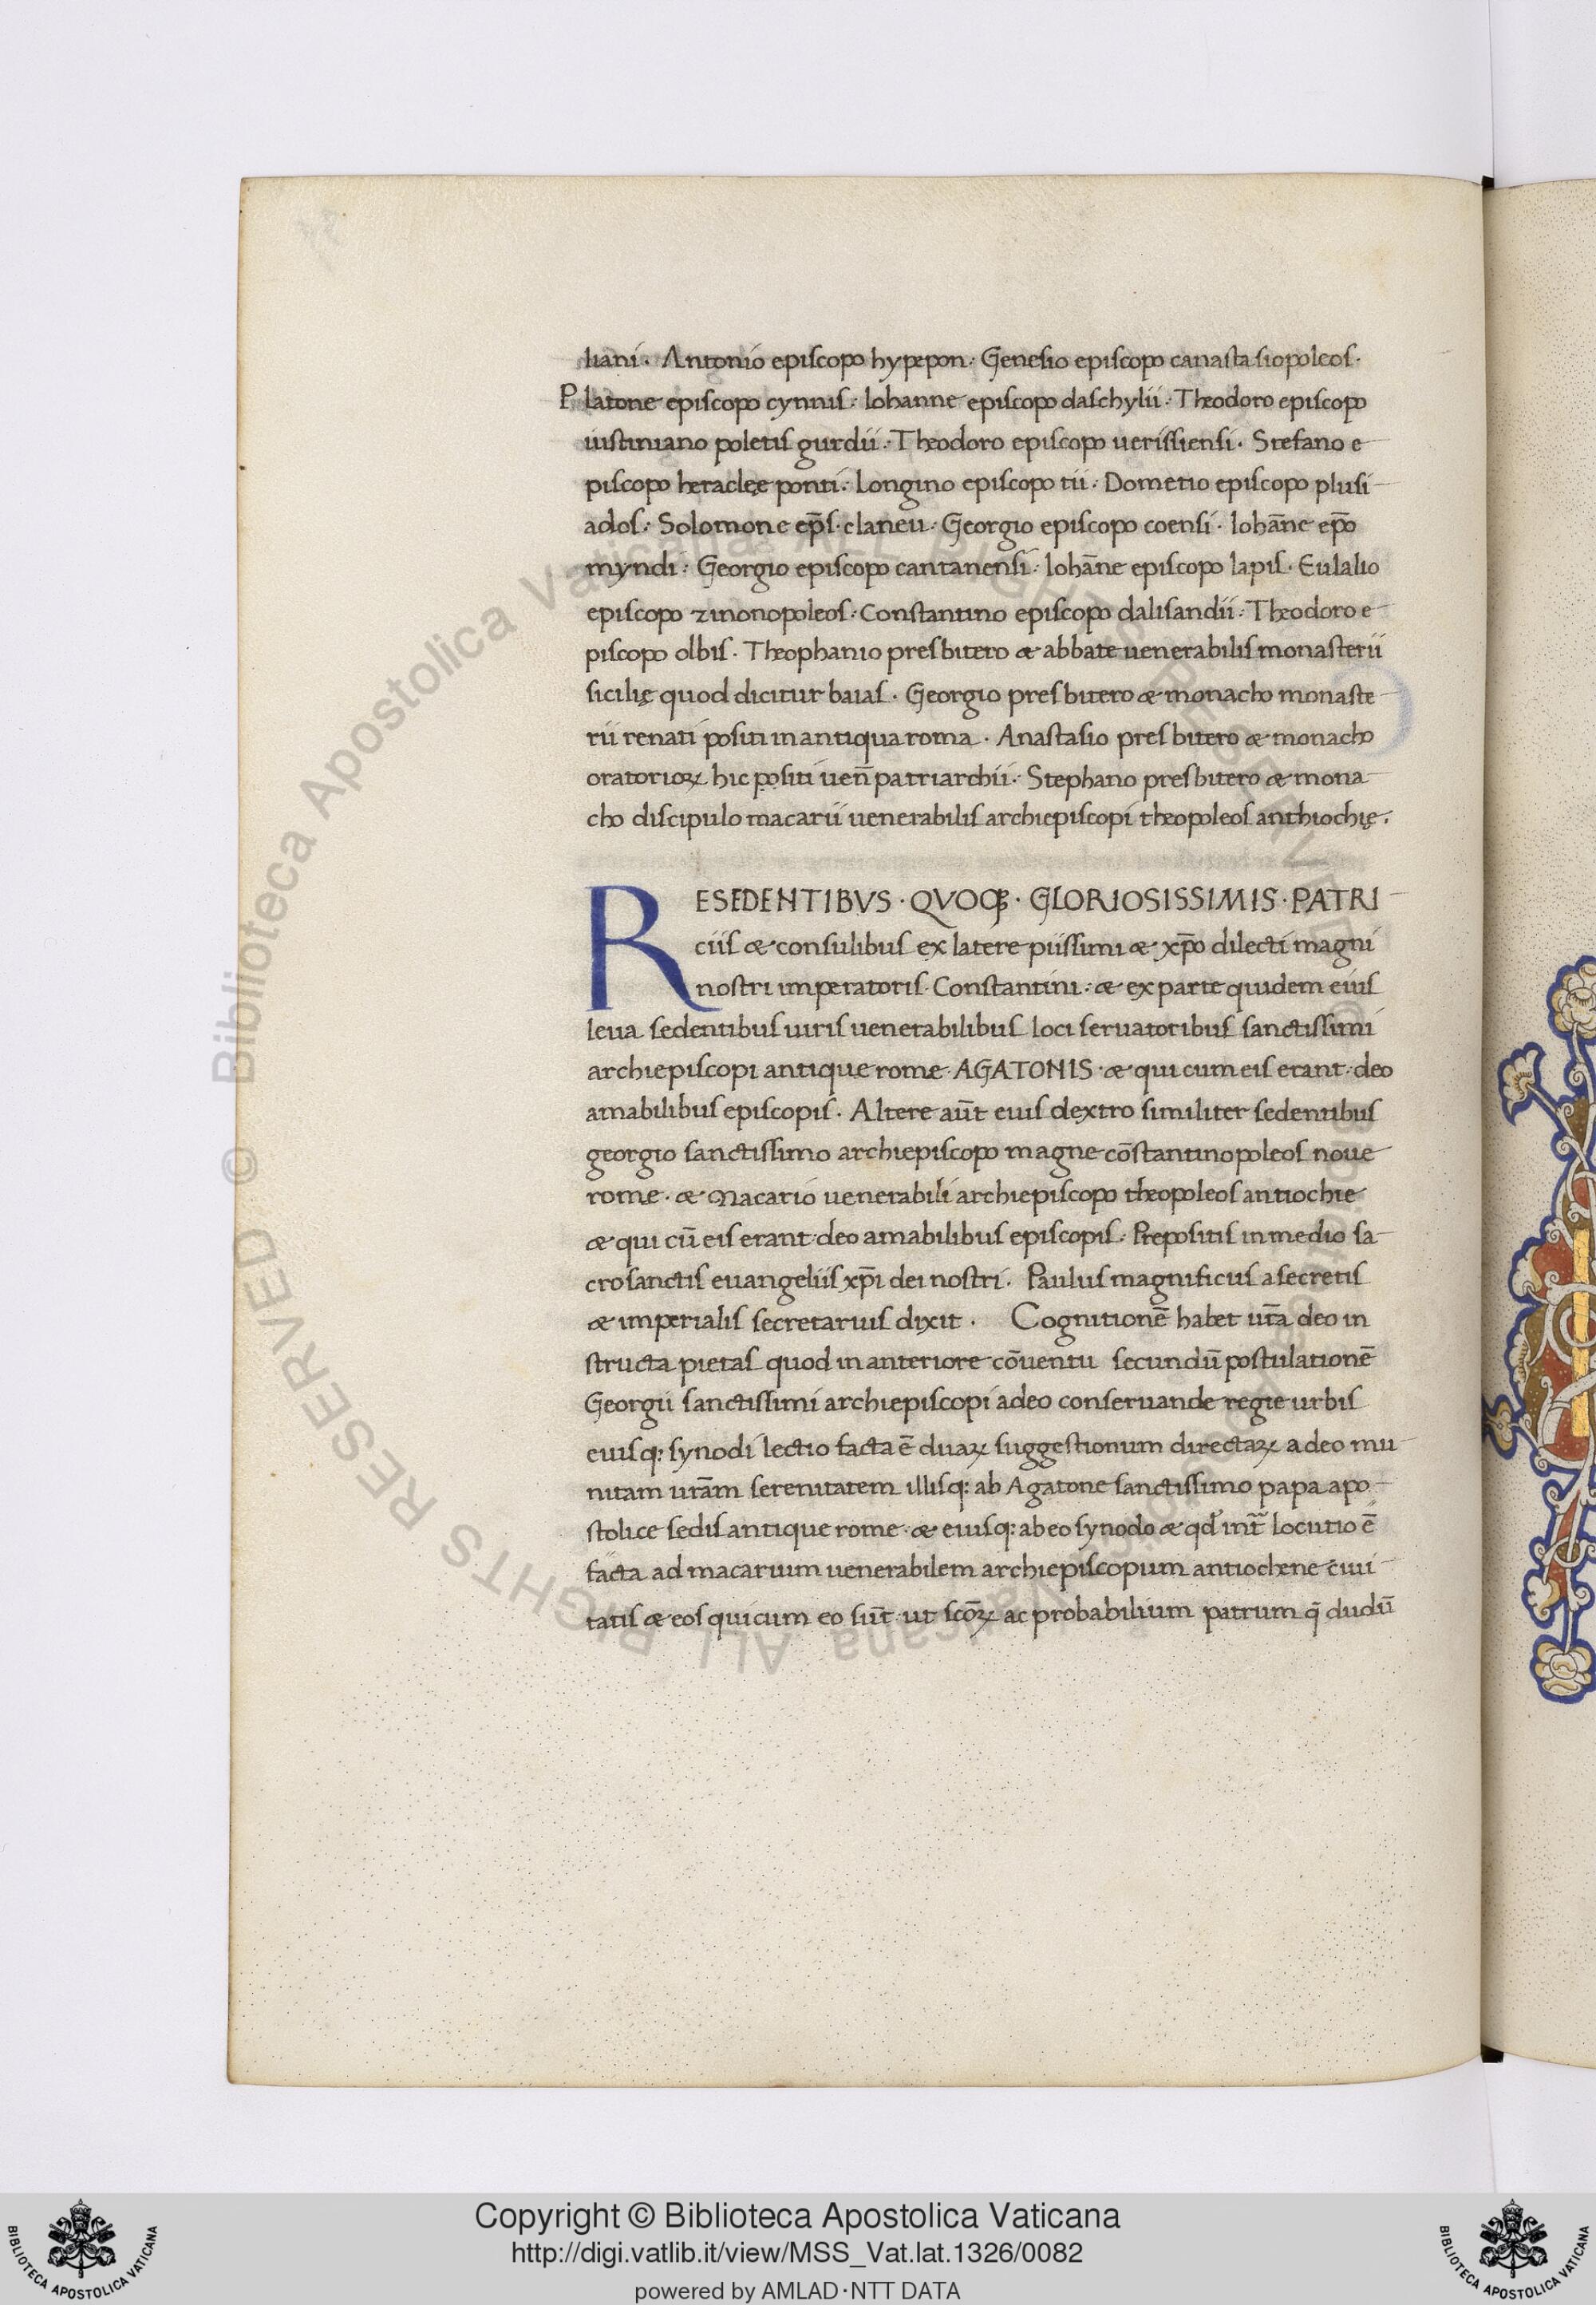 liani · Antonio episcopo hypepon · Genesio episcopo canastasiopoleos ·
Platone episcopo cynnis · Iohanne episcopo daschylii · Theodoro episcopo
iustiniano poletis gurdii · Theodoro episcopo uerissiensi · Stefano e
piscopo heraclęe ponti · Longino episcopo tii · Dometio episcopo plusi
ados · Solomone ep̄s · claneu · Georgio episcopo coensi · Iohāne ep̄o
myndi · Georgio episcopo cantanensi · Iohāne episcopo lapis · Eulalio
episcopo zinonopoleos · Constantino episcopo dalisandii · Theodoro e
piscopo olbis · Theophanio presbitero & abbate uenerabilis monasterii
sicilię quod dicitur baias · Georgio presbitero & monacho monaste
rii renati positi in antiqua roma · Anastasio presbitero & monacho
oratorioꝝ hic positi uen̄ patriarchii · Stephano presbitero & mona
cho discipulo macarii uenerabilis archiepiscopi theopoleos anthiochię ·
RESEDENTIBVS · QVOQꝫ · GLORIOSISSIMIS · PATRI
ciis & consulibus ex latere piissimi & xp̄o dilecti magni
nostri imperatoris · Constantini · & ex parte quidem eius
leua sedentibus uiris uenerabilibus loci seruatoribus sanctissimi
archiepiscopi antique rome · AGATONIS · & qui cum eis erant · deo
amabilibus episcopis · Altere aūt eius dextro similiter sedentibus
georgio sanctissimo archiepiscopo magne cōstantinopoleos noue
rome · & Macario uenerabili archiepiscopo theopoleos antiochie
& qui cū eis erant · deo amabilibus episcopis · Prepositis in medio sa
crosanctis euangeliis xp̄i dei nostri · Paulus magnificus a secretis
& imperialis secretarius dixit · Cognitionē habet ur̄a deo in
structa pietas quod in anteriore cōuentu secundū postulationē
Georgii sanctissimi archiepiscopi a deo conseruande regie urbis
eiusq; synodi lectio facta ē duaꝝ suggestionum directaꝝ a deo mu
nitam ur̄am serenitatem illisq; ab Agatone sanctissimo papa apo
stolice sedis antique rome · & eiusq; ab eo synodo & qd̄ int̄ locutio ē
facta ad macarium uenerabilem archiepiscopum antiochene ciui
tatis & eos qui cum eo sūt · ut sc̄oꝝ ac probabilium patrum q̄ dudū
© Biblioteca Apostolica Vaticana ALL RIGHTS RESERVED
Copyright © Biblioteca Apostolica Vaticana
http://digi.vatlib.it/view/MSS_Vat.lat.1326/0082
powered by AMLAD·NTT DATA
BIBLIOTECA APOSTOLICA VATICANA
BIBLIOTECA APOSTOLICA VATICANA